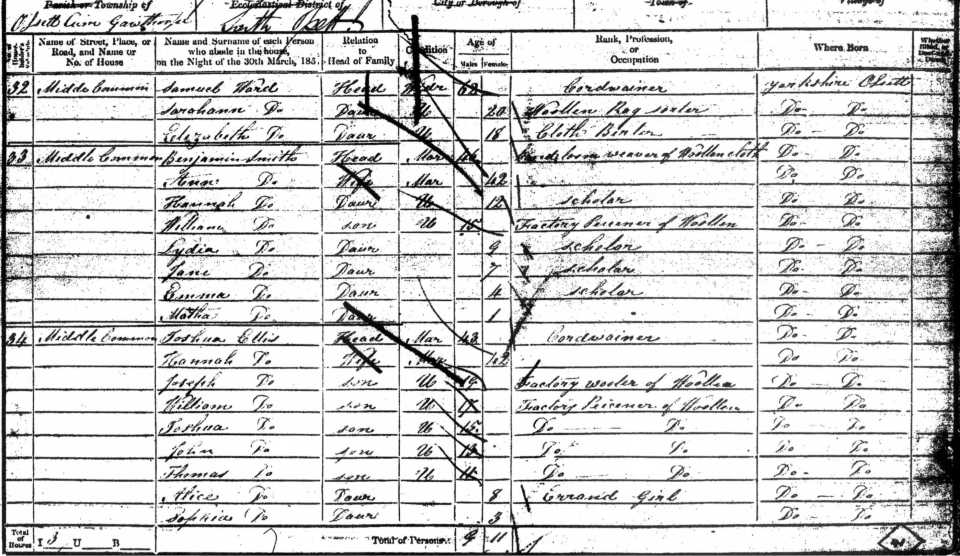 Parish or Township of Ecclesiastical District of City or Borough of Town of Village of
Ossett Cum Gawthorpe South Ossett
Name of Street, Place, or Road, and Name or No. of House Name and Surname of each Person who abode in the house, on the Night of the 30th March, 185 Relation to Head of Family Condition Age of Males Females Rank, Profession, or Occupation Where Born Whether Blind, or Deaf-and-Dumb
32 Middle Common Samuel Ward Head Widr 62 Cordwainer Yorkshire Ossett
Sarahann Do Daur U 20 Woollen Rag sorter Do - Do
Elizabeth Do Daur U 18 Cloth Do - Do
33 Middle Common Benjamin Smith Head Mar 46 Handloom weaver of Woollen cloth Do - Do
Ann Do Wife Mar 42 Do Do
Hannah Do Daur U 12 scholar Do - Do
William Do son U 15 Factory Piecener of Woollen Do- Do
Lydia Do Daur 9 scholar Do - Do
Jane Do Daur 7 scholar Do- Do
Emma Do Daur 4 scholar Do- Do
Martha Do Daur 1 Do- Do
34 Middle Common Joshua Ellis Head Mar 43 Cordwainer Do - Do
Hannah Do Wife Mar 42 Do Do
Joseph Do son U 19 Factory of Woollen Do - Do
William Do son U 17 Factory Piecener of Woollen Do - Do
Joshua Do son U 15 Do Do Do Do
John Do son U 13 Do Do Do Do
Thomas Do son U 11 Do Do Do- Do
Alice Do Daur 8 Errand Girl Do - Do
Sophia Do Daur 3 Do - Do
Total of Houses I 3 U B Total of Persons 9 11